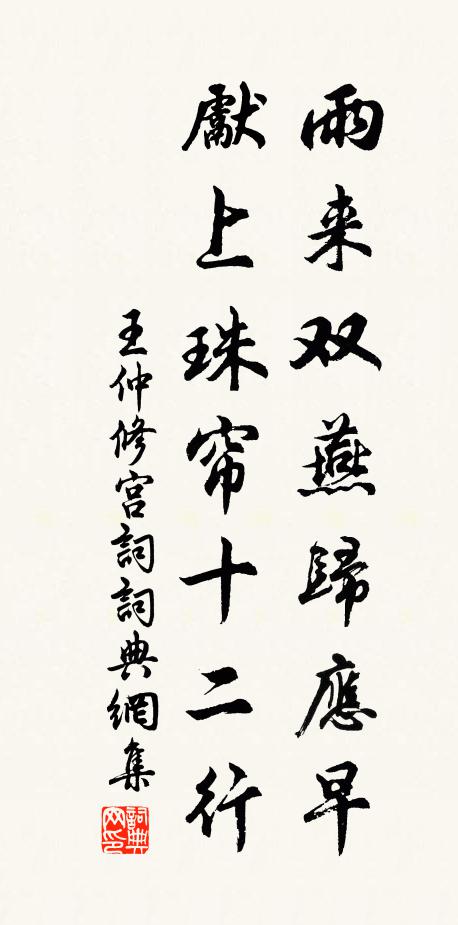 雨来双燕歸應早
獻上珠帘十二行
王仲修宫詞詞典網集
詞典网印